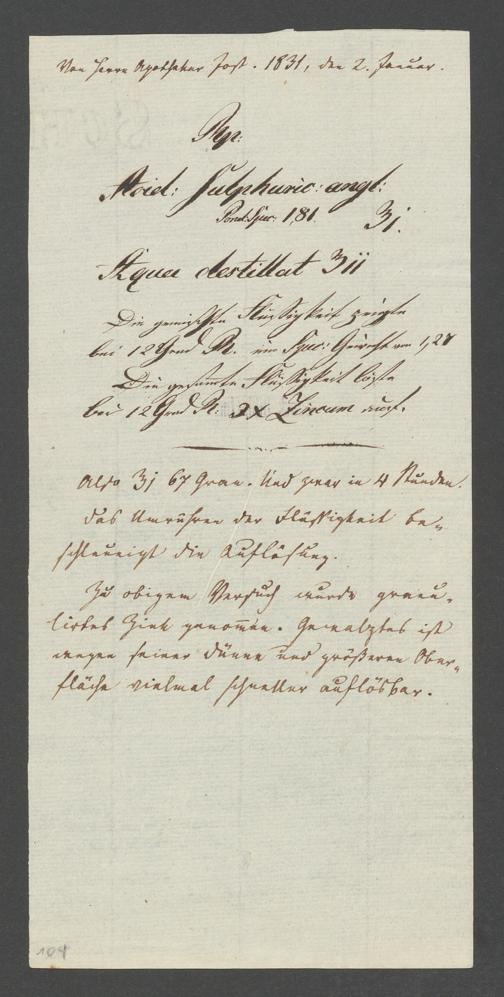 Von Herrn Apotheker Jost. 1831, den 2. Januar.
Rp:
Acid: Sulphuric: angl:
Pond: Spec: 1,81. ʒj.
Aqua destillat ʒii
Die gemischte Flüssigkeit zeigte
bei 12 Grad R. ein Spec: Gewicht von 1,27
Die gesamte Flüssigkeit löste
bei 12 Grad R. Zincum auf.
Also ʒj 67 Gran. Und zwar in 4 Stunden.
Das Umrühren der Flüssigkeit be-
schleunigt die Auflösung.
Zu obigem Versuch wurde granu-
lirtes Zink genommen. Gewalztes ist
wegen seiner Dünne und größeren Ober-
fläche vielmal schneller auflösbar.
104